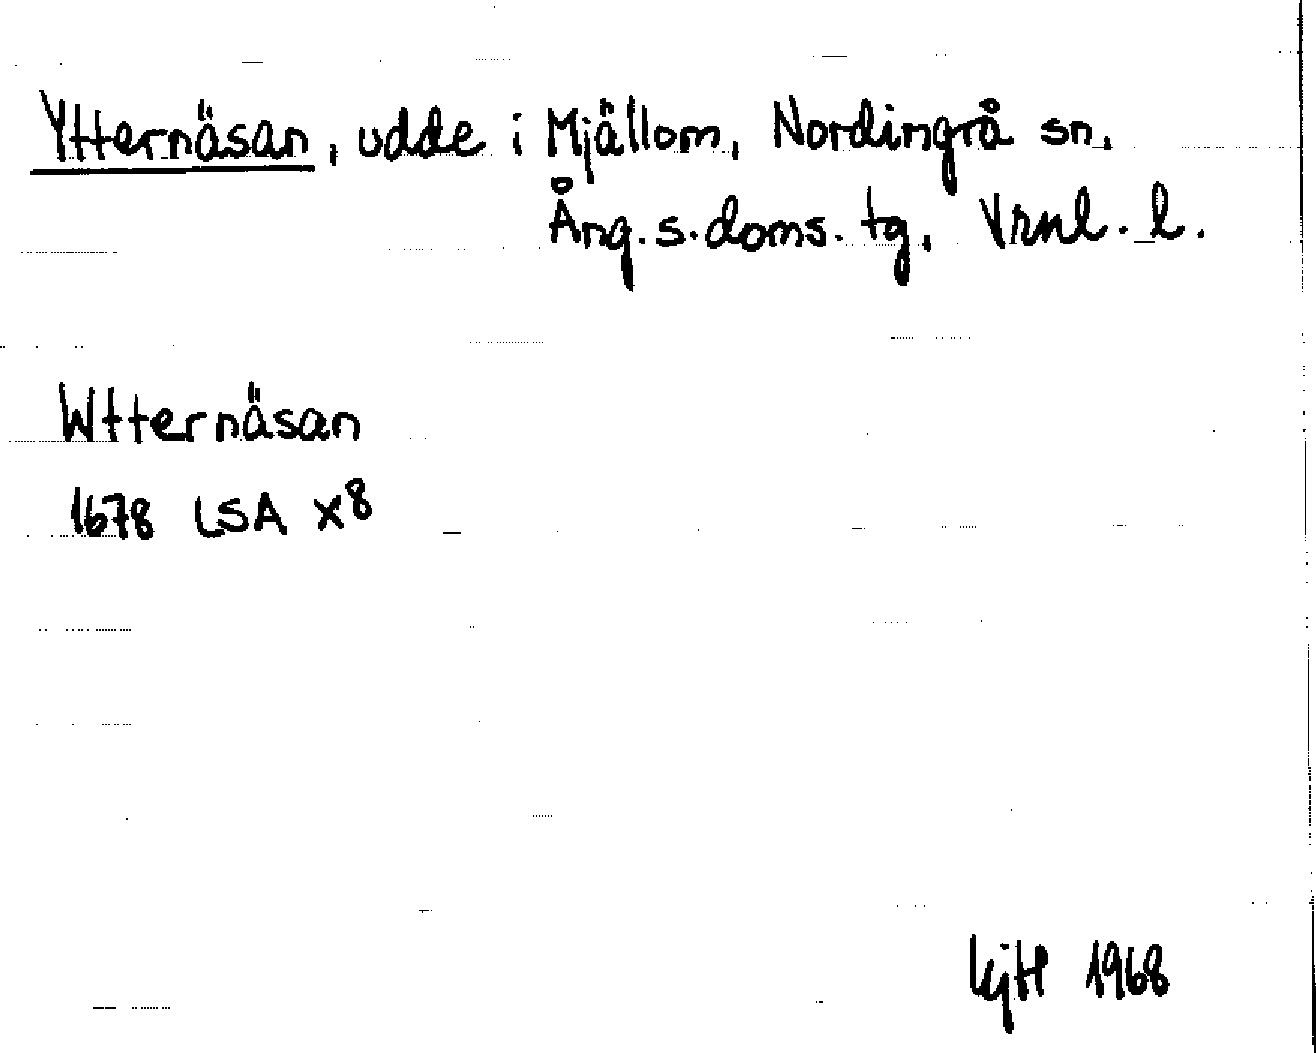 Ytternäsan, udde i Mjällom, Nordingrå sn,
Ång.s.doms.tg, Vrnl. l.
Wtternäsan
1678 LSA X8
1968